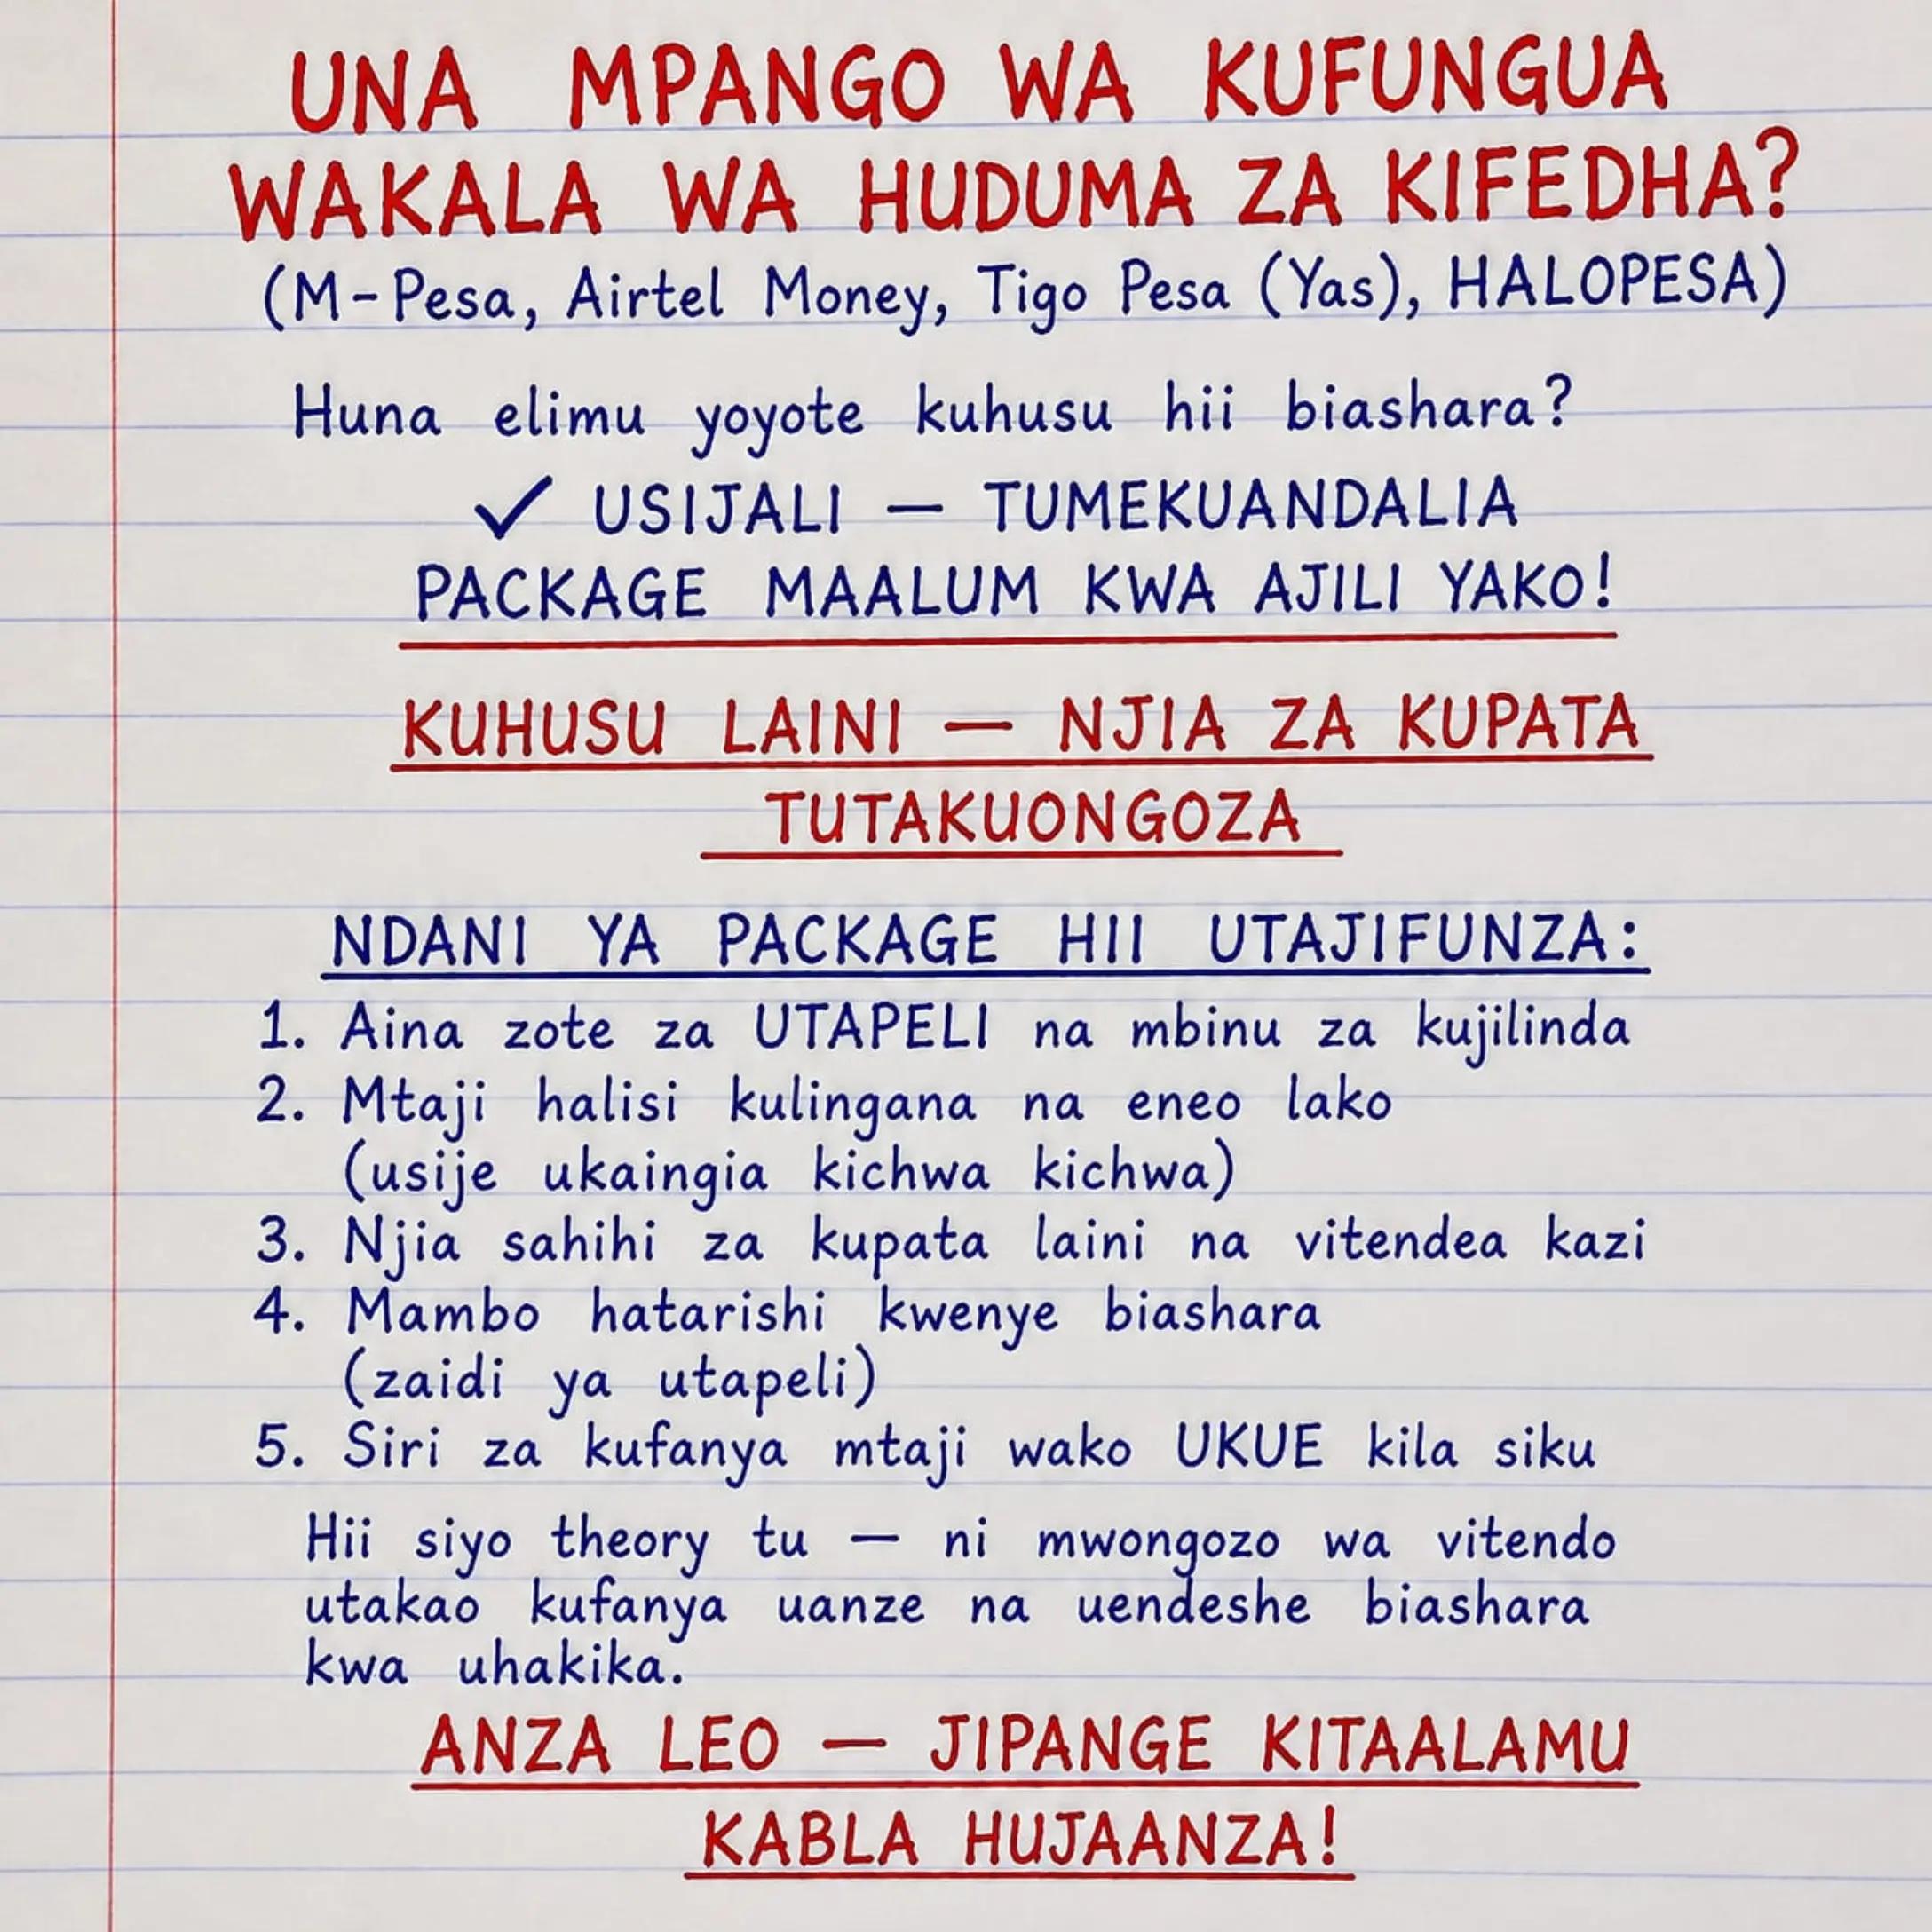 UNA MPANGO WA KUFUNGUA
WAKALA WA HUDUMA ZA KIFEDHA?
(M-Pesa, Airtel Money, Tigo Pesa (Yas), HALOPESA)
Huna elimu yoyote kuhusu hii biashara?
✓ USIJALI — TUMEKUANDALIA
PACKAGE MAALUM KWA AJILI YAKO!
KUHUSU LAINI — NJIA ZA KUPATA
TUTAKUONGOZA
NDANI YA PACKAGE HII UTAJIFUNZA:
1. Aina zote za UTAPELI na mbinu za kujilinda
2. Mtaji halisi kulingana na eneo lako
(usije ukaingia kichwa kichwa)
3. Njia sahihi za kupata laini na vitendea kazi
4. Mambo hatarishi kwenye biashara
(zaidi ya utapeli)
5. Siri za kufanya mtaji wako UKUE kila siku
Hii siyo theory tu — ni mwongozo wa vitendo
utakao kufanya uanze na uendeshe biashara
kwa uhakika.
ANZA LEO — JIPANGE KITAALAMU
KABLA HUJAANZA!